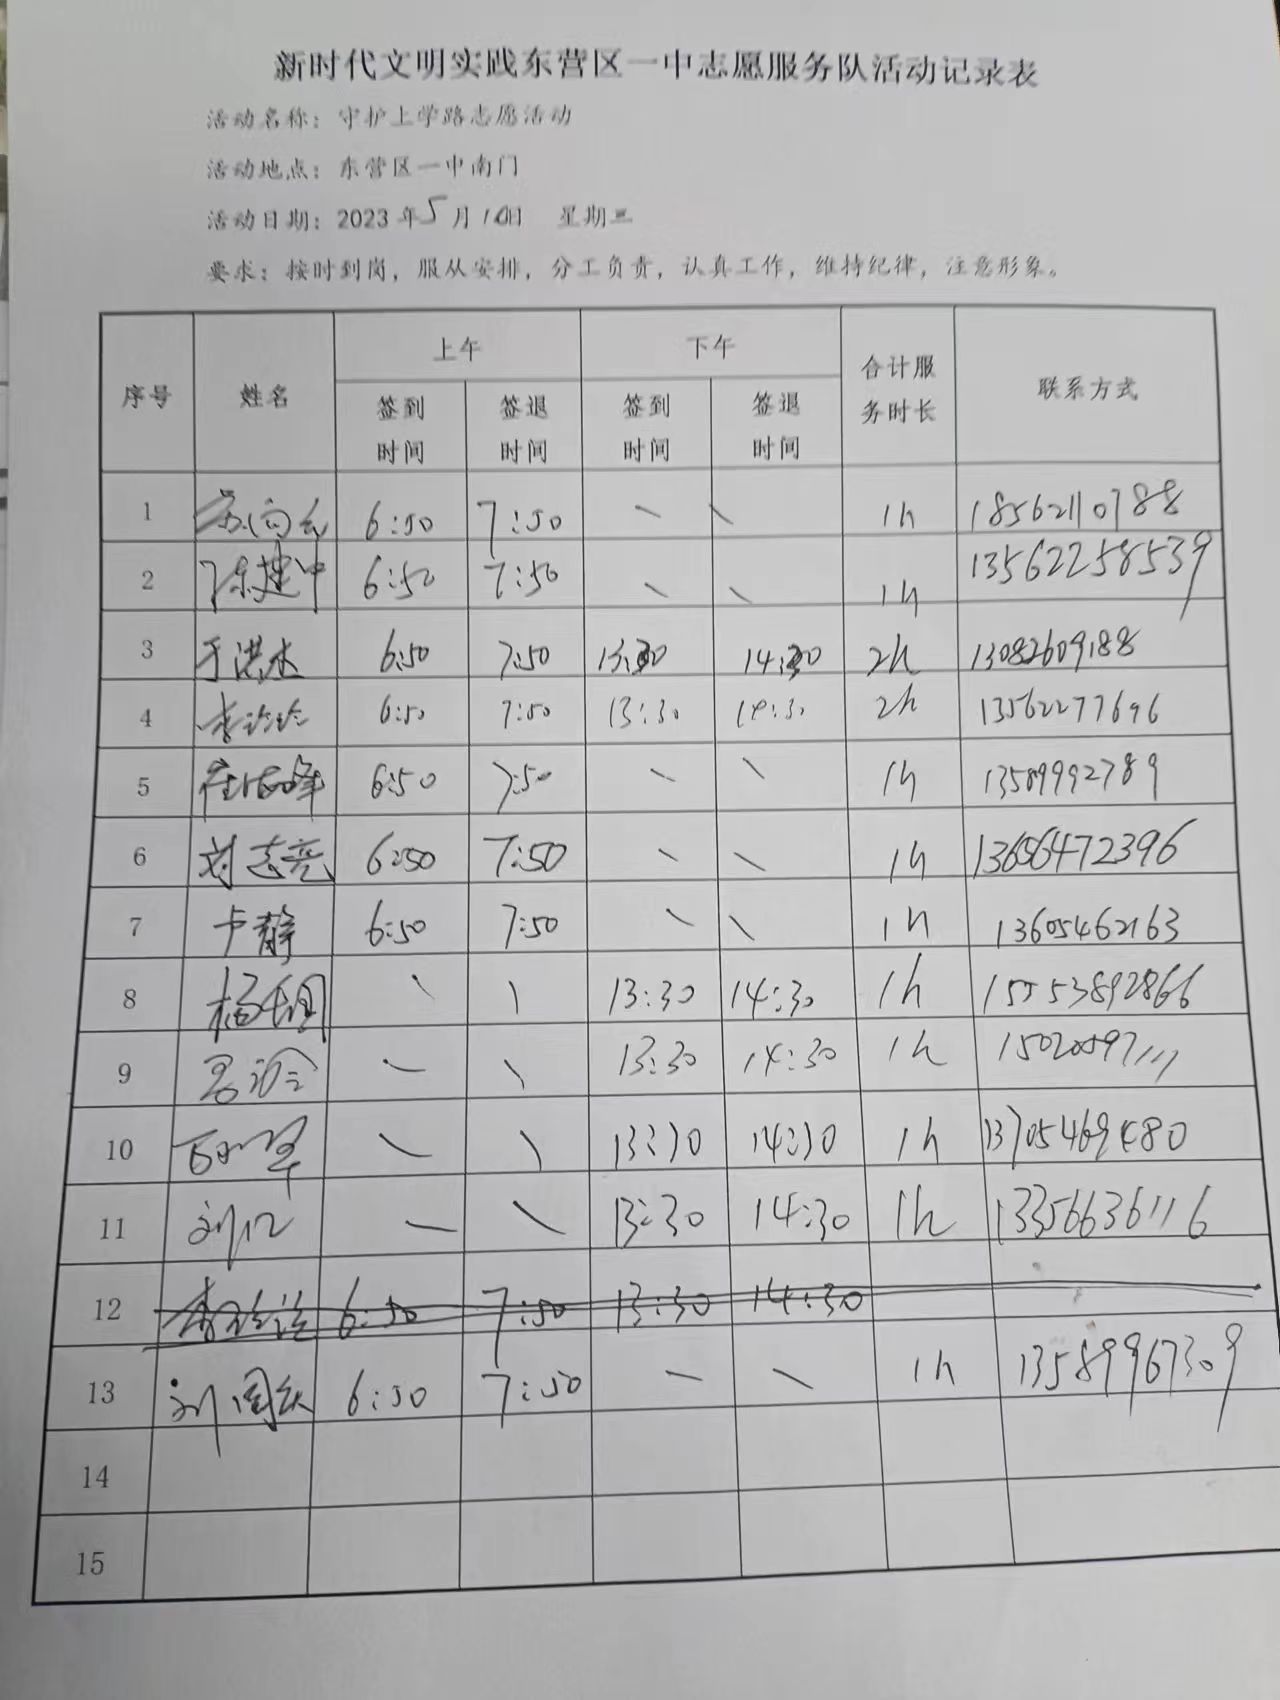 新时代文明实践东营区一中志愿服务队活动记录表
活动名称：守护上学路志愿活动
活动地点：东营区一中南门
活动日期：2023年5月10日 星期三
要求：按时到岗，服从安排，分工负责，认真工作，维持纪律，注意形象。
序号 姓名 上午 下午 合计服务时长 联系方式
签到时间 签退时间 签到时间 签退时间
1 6:50 7:50 1h 18562110788
2 陈建冲 6:50 7:50 1h 13562258539
3 于洪水 6:50 7:50 13:30 14:30 2h 13082609188
4 李玲玲 6:50 7:50 13:30 14:30 2h 13562277696
5 6:50 7:50 1h 13589992789
6 刘志亮 6:50 7:50 1h 13656472396
7 卢静 6:50 7:50 1h 13605462163
8 13:30 14:30 1h 15553892866
9 13:30 14:30 1h
10 13:30 14:30 1h
11 13:30 14:30 1h 13356636116
12 6:50 7:50 13:30 14:30
13 6:50 7:50 1h 13589967309
14
15